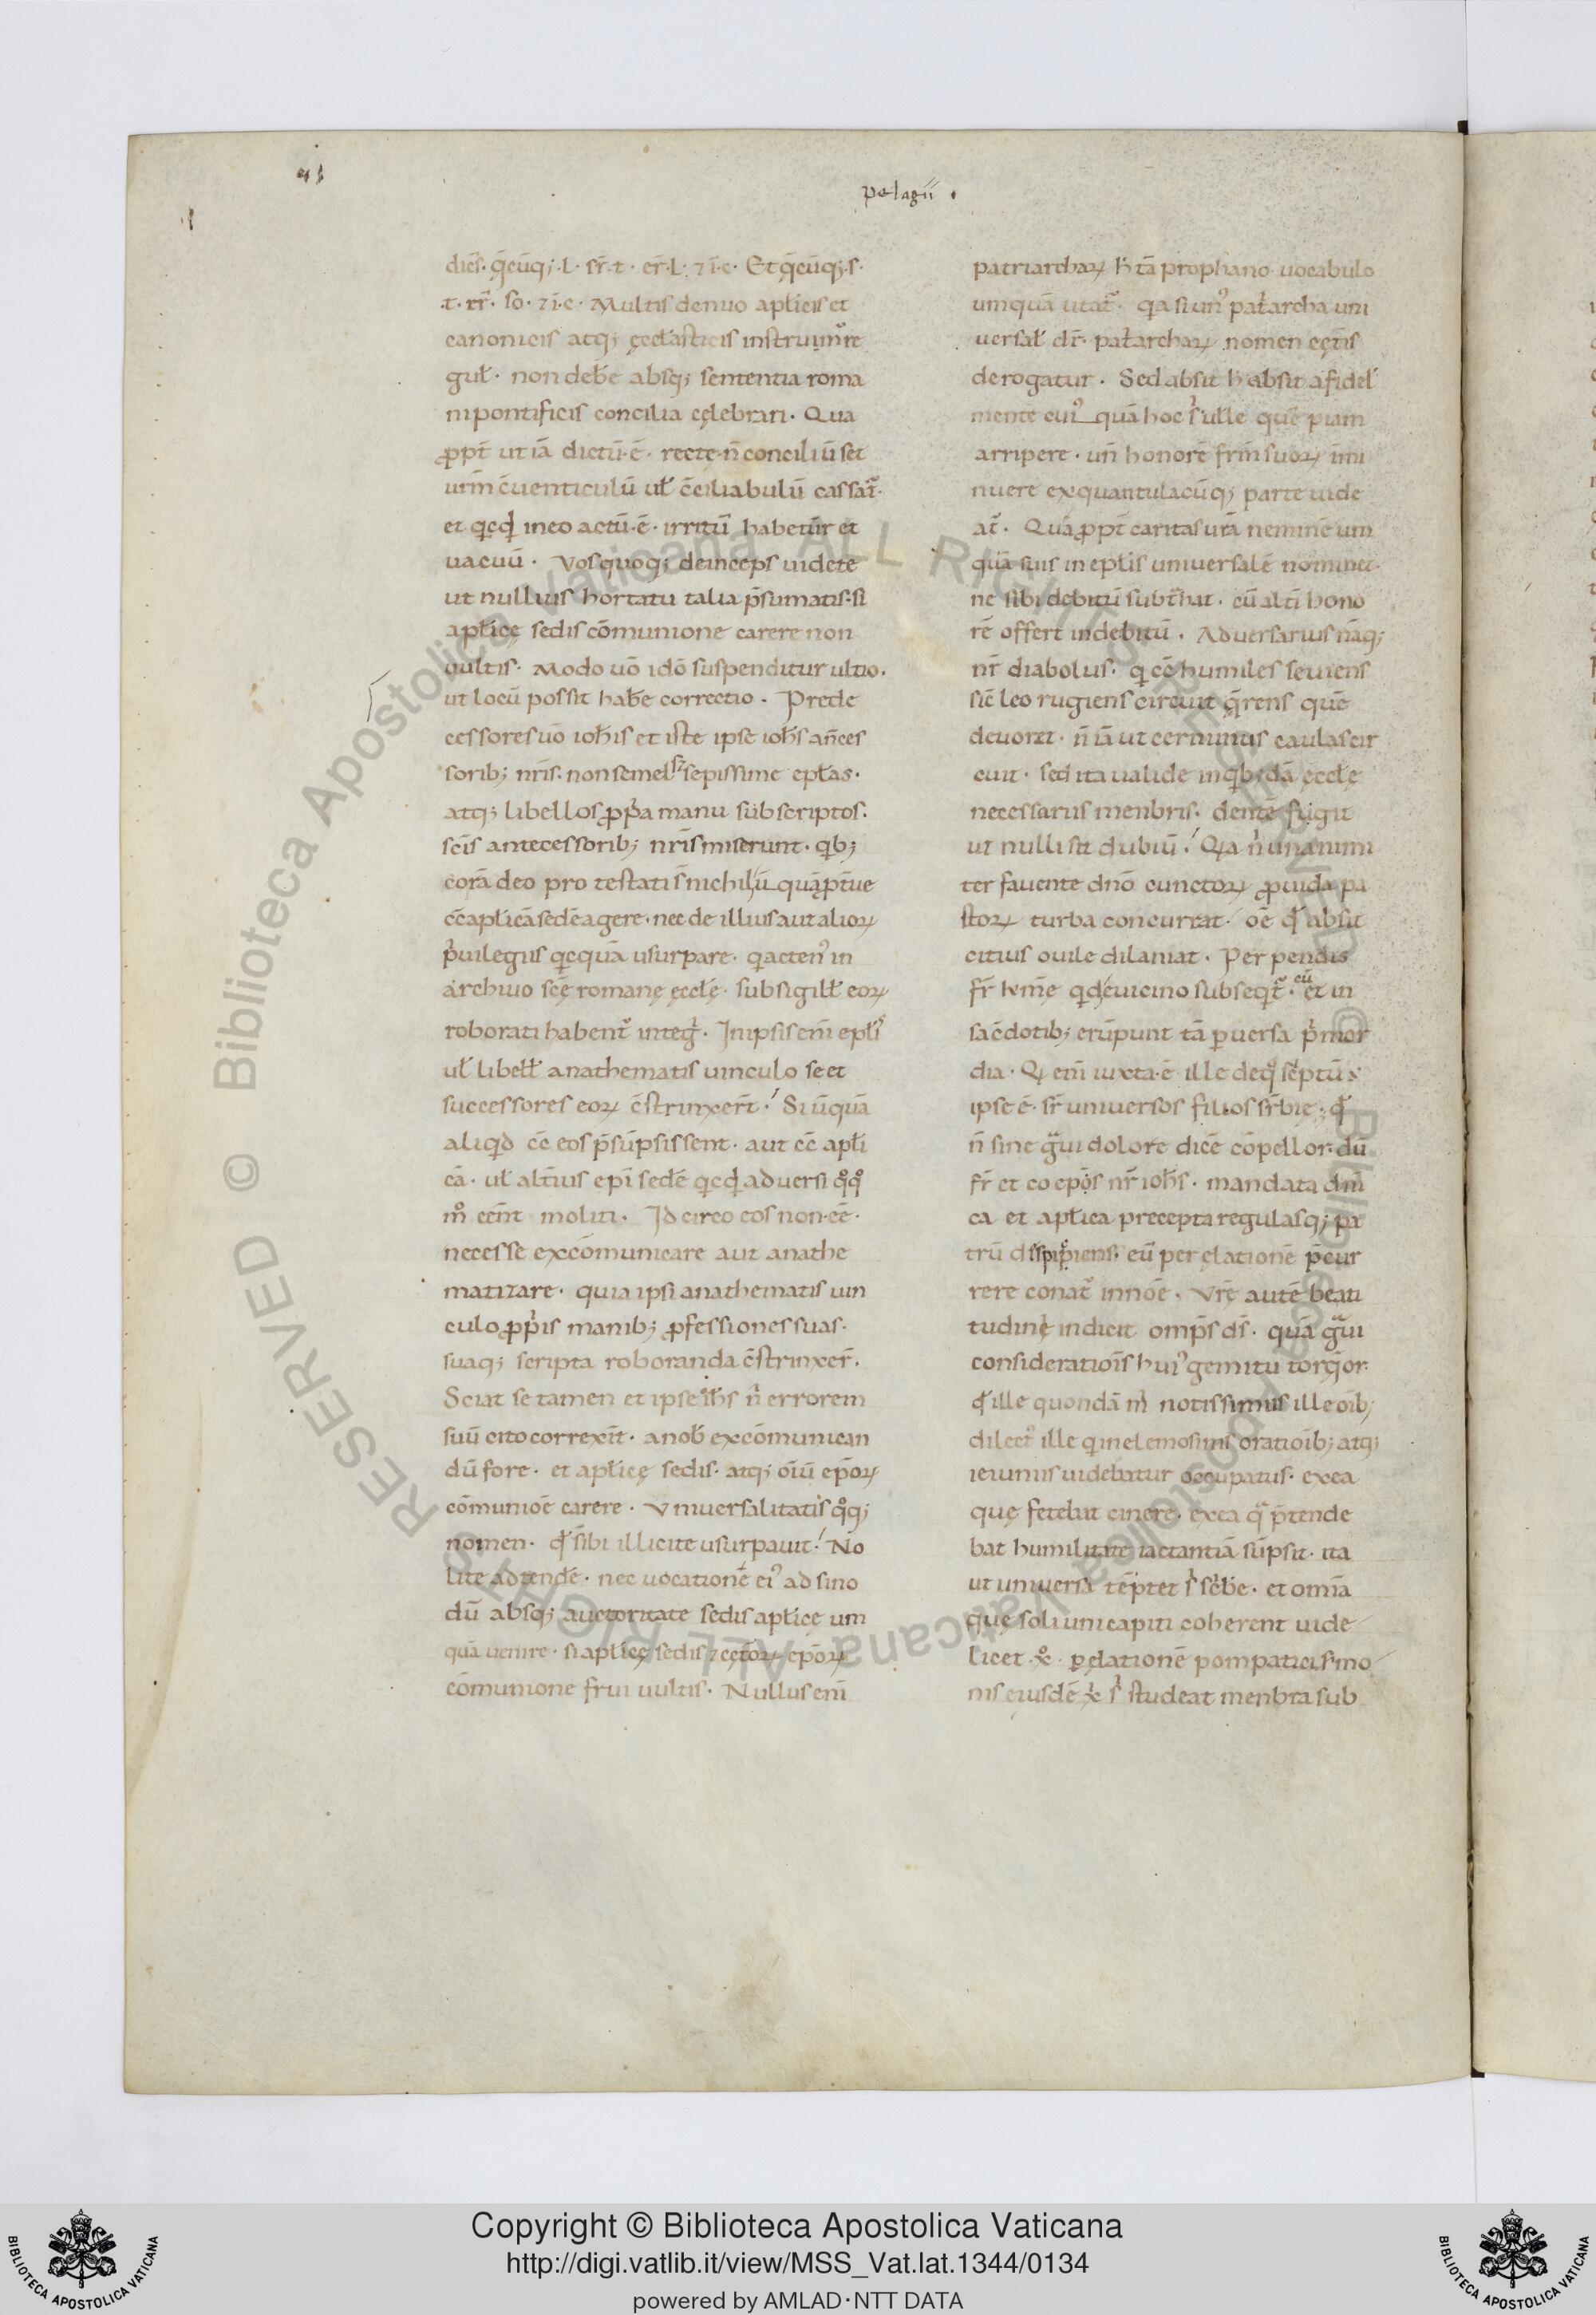 pelagii .
dicēs. q̄cūq; .l. sr̄.t. er̄.l: ⁊ i.c. Et q̄cūq; .s.
.t. rr̄. so. ⁊ i.c. Multis denuo apłicis et
canonicis atq; ęccłasticis instruim᷒ re
guł. non deb̄e absq; sententia roma
ni pontificis concilia cęlebrari. Qua
ꝓpt̄ ut iā dictū.ē. recte.n̄ conciliū set
urm̄ c̄uenticulū uł c̄ciliabulū cassat᷒.
et qicqd in eo actū.ē. irritū habetur et
uacuū. Vos quoq; deinceps uidete
ut nullius hortatu talia p̄sumatis. si
apłicę sedis cōmunione carere non
uultis. Modo uō idō suspenditur ultio.
ut locū possit habe correctio. Prede
cessores uō ioħis et iste ipse ioħs an̄ces
sorib; nr̄is. non semel sȝ sepissime epłas.
atq; libellos ꝓpa manu subscriptos.
scīs antecessorib; nr̄is miserunt. qib;
corā deo pro testati s̄ nichil
cc̄ apłicā sedē agere. nec de illius aut alioꝝ
puilegiis qicquā usurpare. q actenꝰ in
archiuo scę romanę ęccłę. sub sigill eoꝝ
roborati habent᷒ inteḡ. In ipsis enī epłis
uł libell anathematis uinculo se et
successores eoꝝ c̄strinxer̄t. Si ūquā
aliqid cc̄ eos p̄sūpsissent. aut cc̄ apłi
cā. uł alt̄ius epī sedē qicqd aduersi qoqo
mo ceēnt moliti. Id circo eos non.eē.
necesse excōmunicare aut anathe
matizare. quia ipsi anathematis uin
culo ꝓpis manib; ꝓfessiones suas.
suaq; scripta roboranda c̄strinxer̄.
Sciat se tamen et ipse ioħs ni errorem
suū cito correxit̄. a nob̄ excōmunican
dū fore. et apłicę sedis. atq; oīū ep̄oꝝ
cōmunioē carere. Vniuersalitatis qoq;
nomen. qd sibi illicite usurpauit. No
lite adtende. nec uocationē eiꝰ ad sino
dū absq; auctoritate sedis apłicę um
quā uenire. si apłicę sedis ⁊ cęt̄oꝝ ep̄oꝝ
cōmunione frui uultis. Nullus enī
patriarchaꝝ h tā prophano uocabulo
umquā utat᷒. qa si unꝰ pat̄archa uni
uersał dr̄. pat̄archaꝝ nomen cęt̄is
derogatur. Sed absit h absit a fidel
mente cuiꝰquā hoc s uelle quē piam
arripere. un̄ honorē frm̄ suoꝝ imi
nuere ex quantulacūq; parte uide
at᷒. Quāꝓpt̄ caritas ura neminē um
quā suis in epłis uniuersalē nominet.
ne sibi debitū subt̄hat. cū alti hono
rē offert indebitū. Aduersarius nāq;
nr̄ diabolus. qi cc̄ humiles seuiens
sic̄ leo rugiens circuit q̄rens quē
deuoret. n̄ iā ut cernimus caulas cir
cuit. sed ita ualide in qib; dā ęccłę
necessariis menbris. dentē figit
ut nulli sit dubiū. Qa ni unanimi
ter fauente dn̄o cunctoꝝ ꝓuida pa
stoꝝ turba concurrat. oē qd absit
citius ouile dilaniat. Perpendis
fr̄ kme qid e uicino subseqit᷒. cū et in
sac̄dotib; erūpunt tā puersa pimor
dia. Qi enī iuxta.ē ille de qo sc̄ptū.
ipse.ē. sr̄ universos filios srbię; qd
n̄ sine gui dolore dice cōpellor. dū
fr̄ et coep̄os nr̄ ioħs. mandata dni
ca et apłica precepta regulasq; pa
trū cū per elationē p̄cur
rere conat᷒ in nōe. Vrę autē beati
tudini indicit omp̄s ds̄. quā gui
considerationis huiꝰ gemitu torqor.
qd ille quondā m notissimus ille oīb;
dilectꝰ ille qi in elemosinis orationib; atq;
ieiuniis uidebatur occupatus. ex ea
quę fetebat cinere. ex ea q p̄tende
bat humilitate iactantiā sūpsit. ita
ut universa tēptet s sc̄be. et omīa
quę soli uni capiti coherent uide
licet xo. p elationē pompatici smo
nis eiusdē x s studeat menbra sub
Copyright © Biblioteca Apostolica Vaticana
http://digi.vatlib.it/view/MSS_Vat.lat.1344/0134
powered by AMLAD·NTT DATA